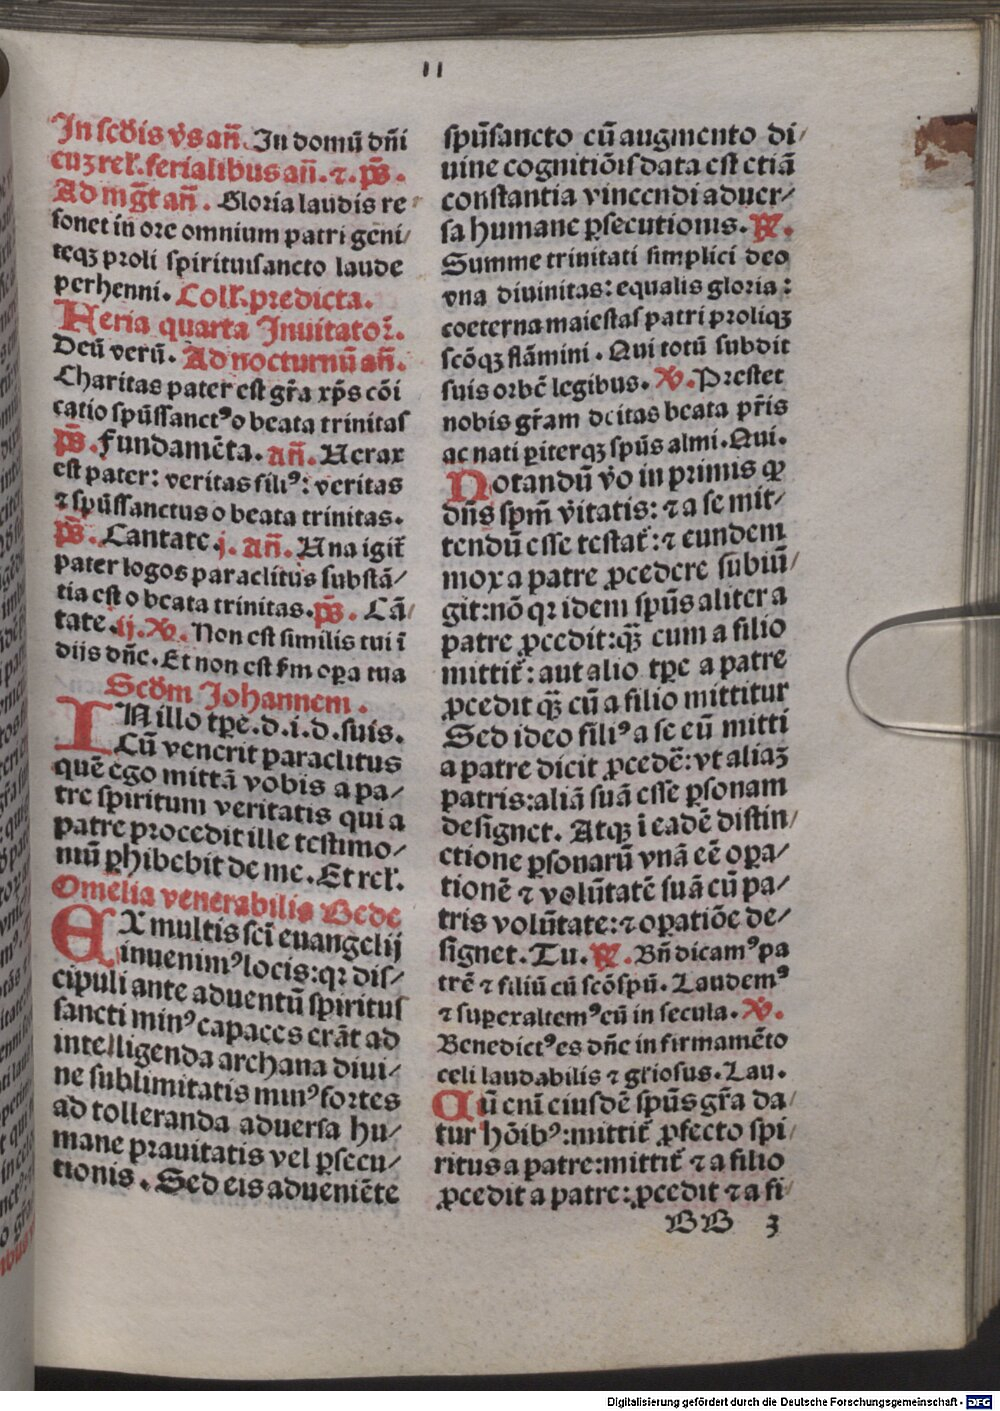 11
In scd̄is v̄s an̄. In domū dn̄i
cuz rel̄. ferialibus an̄. ⁊. ps̄.
Ad mgt̄ an̄. Gloria laudis re
sonet in ore omnium patri geni/
teqꝫ proli spirituisancto laude
perhenni. Coll̄. predicta.
Feria quarta Inuitator̄.
Deū verū. Ad nocturnū an̄.
Charitas pater est gr̄a xp̄s cōi
catio spūssanctꝰ o beata trinitas
ps̄. Fundamēta. an̄. Verax
est pater: veritas filiꝰ: veritas
⁊ spūssanctus o beata trinitas.
ps̄. Cantate. j. An̄. Una igit̄
pater logos paraclitus substā/
tia est o beata trinitas. ps̄. Cā/
tate. ij. ℣. Non est similis tui ī
diis dn̄e. Et non est s̄m oꝑa tua
Scd̄m Johannem.
IN illo tꝑe. d. i. d. suis.
Cū venerit paraclitus
quē ego mittā vobis a pa/
tre spiritum veritatis qui a
patre procedit ille testimo/
niū ꝑhibebit de me. Et rel̄.
Omelia venerabilis Bede
EX multis sci̅ euangelij
inuenimꝰ locis: qꝛ dis/
cipuli ante aduentū spiritus
sancti minꝰ capaces erāt ad
intelligenda archana diui/
ne sublimitatis minꝰ fortes
ad tolleranda aduersa hu/
mane prauitatis vel ꝑsecu/
tionis. Sed eis adueniēte
spūsancto cū augmento di/
uine cognitiōis data est etiā
constantia vincendi aduer/
sa humane ꝑsecutionis. ℟.
Summe trinitati simplici deo
vna diuinitas: equalis gloria:
coeterna maiestas patri proliqꝫ
scōqꝫ flāmini. Qui totū subdit
suis orbē legibus. ℣. Prestet
nobis gr̄am deitas beata pr̄is
ac nati ꝑiterqꝫ spūs almi. Qui.
Notandū v̄o in primis ꝙ
dn̄s spm̄ v̄itatis: ⁊ a se mit/
tendū esse testat̄: ⁊ eundem
mox a patre ꝓcedere subiū/
git: nō qꝛ idem spūs aliter a
patre ꝓcedit: qꝫ̄ cum a filio
mittit̄: aut alio tꝑe a patre
ꝓcedit qꝫ̄ cū a filio mittitur
Sed ideo filiꝰ a se eū mitti
a patre dicit ꝓcedē: vt aliaꝫ
patris: aliā suā esse ꝑsonam
designet. Atqꝫ i eadē distin/
ctione ꝑsonarū vnā eē oꝑa/
tionē ⁊ volūtatē suā cū pa/
tris volūtate: ⁊ oꝑatiōe de/
signet. Tu. ℟. Bn̄dicamꝰ pa
trē ⁊ filiū cū scō spū. Laudemꝰ
⁊ superaltemꝰ eū in secula. ℣.
Benedictꝰ es dn̄e in firmamēto
celi laudabilis ⁊ gl̄iosus. Lau.
Cū enī eiusdē spūs gr̄a da/
tur hōibꝰ: mittit̄ ꝓfecto spi/
ritus a patre: mittit̄ ⁊ a filio
ꝓcedit a patre: ꝓcedit ⁊ a fi/
BB 3
Digitalisierung gefördert durch die Deutsche Forschungsgemeinschaft - DFG